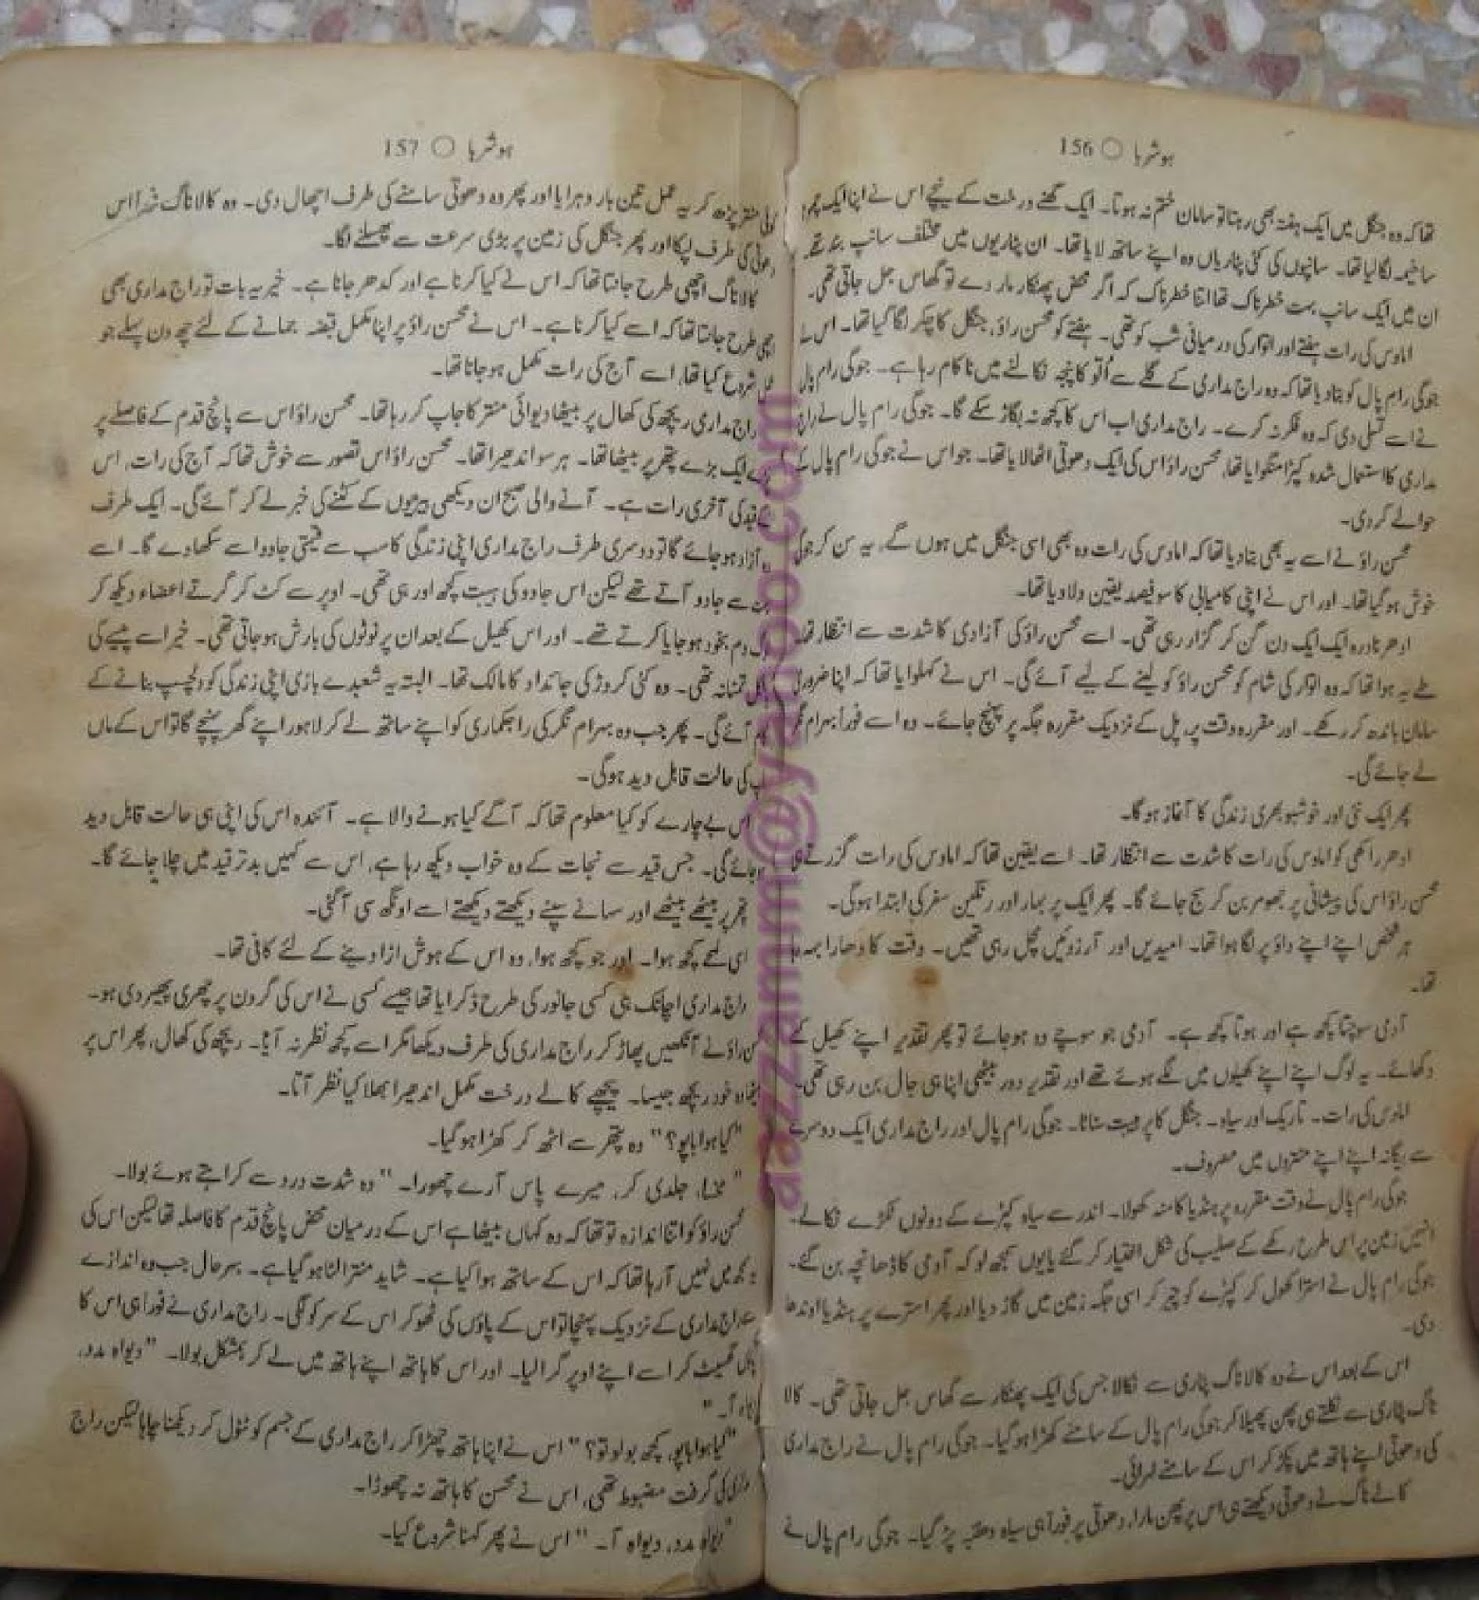 ہوشربا ○ 156
تھا کہ وہ جنگل میں ایک ہفتہ بھی رہتا تو سامان ختم نہ ہوتا۔ ایک گھنے درخت کے نیچے اس نے اپنا ایک چھوٹا
سا خیمہ لگا لیا تھا۔ سانپوں کی کئی پٹاریاں وہ اپنے ساتھ لایا تھا۔ ان پٹاریوں میں مختلف سانپ بند تھے
ان میں ایک سانپ بہت خطرناک تھا اتنا خطرناک کہ اگر محض پھنکار مار دے تو گھاس جل جاتی تھی۔
اماوس کی رات ہفتے اور اتوار کی درمیانی شب کو تھی۔ ہفتے کو محسن راؤ، جنگل کا چکر لگا گیا تھا۔ اس نے
جوگی رام پال کو بتا دیا تھا کہ وہ راج مداری کے گلے سے اُلّو کا پنجہ نکالنے میں ناکام رہا ہے۔ جوگی رام پال
نے اسے تسلی دی کہ وہ فکر نہ کرے۔ راج مداری اب اس کا کچھ نہ بگاڑ سکے گا۔ جوگی رام پال نے راج
مداری کا استعمال شدہ کپڑا منگوایا تھا، محسن راؤ اس کی ایک دھوتی اٹھا لایا تھا۔ جو اس نے جوگی رام پال کے
حوالے کر دی۔
محسن راؤ نے اسے یہ بھی بتا دیا تھا کہ اماوس کی رات وہ بھی اسی جنگل میں ہوں گے، یہ سن کر جوگی
خوش ہو گیا تھا۔ اور اس نے اپنی کامیابی کا سو فیصد یقین دلا دیا تھا۔
ادھر نادرہ ایک ایک دن گن کر گزار رہی تھی۔ اسے محسن راؤ کی آزادی کا شدت سے انتظار تھا۔
طے یہ ہوا تھا کہ وہ اتوار کی شام کو محسن راؤ کو لینے کے لیے آئے گی۔ اس نے کہلوایا تھا کہ اپنا ضروری
سامان باندھ کر رکھے۔ اور مقررہ وقت پر، پل کے نزدیک مقررہ جگہ پر پہنچ جائے۔ وہ اسے فوراً بہرام نگر
لے جائے گی۔
پھر ایک نئی اور خوشبو بھری زندگی کا آغاز ہو گا۔
ادھر راکھی کو اماوس کی رات کا شدت سے انتظار تھا۔ اسے یقین تھا کہ اماوس کی رات گزرتے ہی
محسن راؤ اس کی پیشانی پر جھومر بن کر سج جائے گا۔ پھر ایک پر بہار اور رنگین سفر کی ابتدا ہو گی۔
ہر شخص اپنے اپنے داؤ پر لگا ہوا تھا۔ امیدیں اور آرزوئیں مچل رہی تھیں۔ وقت کا دھارا بہہ رہا
تھا۔
آدمی سوچتا کچھ ہے اور ہوتا کچھ ہے۔ آدمی جو سوچے وہ ہو جائے تو پھر تقدیر اپنے کھیل کسے
دکھائے۔ یہ لوگ اپنے اپنے کھیلوں میں لگے ہوئے تھے اور تقدیر دور بیٹھی اپنا ہی جال بن رہی تھی۔
اماوس کی رات۔ تاریک اور سیاہ۔ جنگل کا پر ہیبت سناٹا۔ جوگی رام پال اور راج مداری ایک دوسرے
سے بیگانہ اپنے اپنے منتروں میں مصروف۔
جوگی رام پال نے وقت مقررہ پر ہنڈیا کا منہ کھولا۔ اندر سے سیاہ کپڑے کے دونوں ٹکڑے نکالے۔
انہیں زمین پر اس طرح رکھے کہ صلیب کی شکل اختیار کر گئے یا یوں سمجھ لو کہ آدمی کا ڈھانچہ بن گئے۔
جوگی رام پال نے استرا کھول کر کپڑے کو چیر کر اسی جگہ زمین میں گاڑ دیا اور پھر استرے پر ہنڈیا اوندھا
دی۔
اس کے بعد اس نے وہ کالا ناگ پٹاری سے نکالا جس کی ایک پھنکار سے گھاس جل جاتی تھی۔ کالا
ناگ پٹاری سے نکلتے ہی پھن پھیلا کر جوگی رام پال کے سامنے کھڑا ہو گیا۔ جوگی رام پال نے راج مداری
کی دھوتی اپنے ہاتھ میں پکڑ کر اس کے سامنے لہرائی۔
کالے ناگ نے دھوتی دیکھتے ہی اس پر پھن مارا، دھوتی پر فوراً ہی سیاہ دھبّہ پڑ گیا۔ جوگی رام پال نے
ہوشربا ○ 157
کوئی منتر پڑھ کر یہ عمل تین بار دہرایا اور پھر وہ دھوتی سامنے کی طرف اچھال دی۔ وہ کالا ناگ اس
دھوتی کی طرف لپکا اور پھر جنگل کی زمین پر بڑی سرعت سے پھسلنے لگا۔
کالا ناگ اچھی طرح جانتا تھا کہ اس نے کیا کرنا ہے اور کدھر جانا ہے۔ خیر یہ بات تو راج مداری بھی
اچھی طرح جانتا تھا کہ اسے کیا کرنا ہے۔ اس نے محسن راؤ پر اپنا مکمل قبضہ جمانے کے لئے چھ دن پہلے جو
عمل شروع کیا تھا، اسے آج کی رات مکمل ہو جانا تھا۔
راج مداری ریچھ کی کھال پر بیٹھا دیوائی منتر کا جاپ کر رہا تھا۔ محسن راؤ اس سے پانچ قدم کے فاصلے پر
ایک بڑے پتھر پر بیٹھا تھا۔ ہر سو اندھیرا تھا۔ محسن راؤ اس تصور سے خوش تھا کہ آج کی رات، اس
کی قید کی آخری رات ہے۔ آنے والی صبح ان دیکھی بیڑیوں کے کٹنے کی خبر لے کر آئے گی۔ ایک طرف
وہ آزاد ہو جائے گا تو دوسری طرف راج مداری اپنی زندگی کا سب سے قیمتی جادو اسے سکھا دے گا۔ اسے
بہت سے جادو آتے تھے لیکن اس جادو کی ہیبت کچھ اور ہی تھی۔ اوپر سے کٹ کر گرتے اعضاء دیکھ کر
لوگ دم بخود ہو جایا کرتے تھے۔ اور اس کھیل کے بعد ان پر نوٹوں کی بارش ہو جاتی تھی۔ خیر اسے پیسے کی
بالکل تمنا نہ تھی۔ وہ کئی کروڑ کی جائداد کا مالک تھا۔ البتہ یہ شعبدے بازی اپنی زندگی کو دلچسپ بنانے کے
کام آئے گی۔ پھر جب وہ بہرام نگر کی راجکماری کو اپنے ساتھ لے کر لاہور اپنے گھر پہنچے گا تو اس کے ماں
باپ کی حالت قابل دید ہو گی۔
اس بے چارے کو کیا معلوم تھا کہ آگے کیا ہونے والا ہے۔ آئندہ اس کی اپنی ہی حالت قابل دید
ہو جائے گی۔ جس قید سے نجات کے وہ خواب دیکھ رہا ہے، اس سے کہیں بدتر قید میں چلا جائے گا۔
پتھر پر بیٹھے بیٹھے اور سہانے سپنے دیکھتے دیکھتے اسے اونگھ سی آ گئی۔
اسی لمحے کچھ ہوا۔ اور جو کچھ ہوا، وہ اس کے ہوش اڑا دینے کے لئے کافی تھا۔
راج مداری اچانک ہی کسی جانور کی طرح ڈکرایا تھا جیسے کسی نے اس کی گردن پر چھری پھیر دی ہو۔
محسن راؤ نے آنکھیں پھاڑ کر راج مداری کی طرف دیکھا مگر اسے کچھ نظر نہ آیا۔ ریچھ کی کھال، پھر اس پر
بیٹھا وہ خود ریچھ جیسا۔ پیچھے کالے درخت مکمل اندھیرا بھلا کیا نظر آتا۔
"کیا ہوا باپو؟" وہ پتھر سے اٹھ کر کھڑا ہو گیا۔
"محنسا، جلدی کر، میرے پاس آرے چھورا۔" وہ شدت درد سے کراہتے ہوئے بولا۔
محسن راؤ کو اتنا اندازہ تو تھا کہ وہ کہاں بیٹھا ہے اس کے درمیان محض پانچ قدم کا فاصلہ تھا لیکن اس کی
سمجھ میں نہیں آ رہا تھا کہ اس کے ساتھ ہوا کیا ہے۔ شاید منتر الٹا ہو گیا ہے۔ بہرحال جب وہ اندازے
سے راج مداری کے نزدیک پہنچا تو اس کے پاؤں کی ٹھوکر اس کے سر کو لگی۔ راج مداری نے فوراً ہی اس کا
پاؤں گھسیٹ کر اسے اپنے اوپر گرا لیا۔ اور اس کا ہاتھ اپنے ہاتھ میں لے کر بمشکل بولا۔ "دیواہ مدو،
دیواہ آ۔"
"کیا ہوا باپو، کچھ بولو تو؟" اس نے اپنا ہاتھ چھڑا کر راج مداری کے جسم کو ٹٹول کر دیکھنا چاہا لیکن راج
مداری کی گرفت مضبوط تھی، اس نے محسن کا ہاتھ نہ چھوڑا۔
"دیواہ مدو، دیواہ آ۔" اس نے پھر کہنا شروع کیا۔
aazzamm@yahoo.com